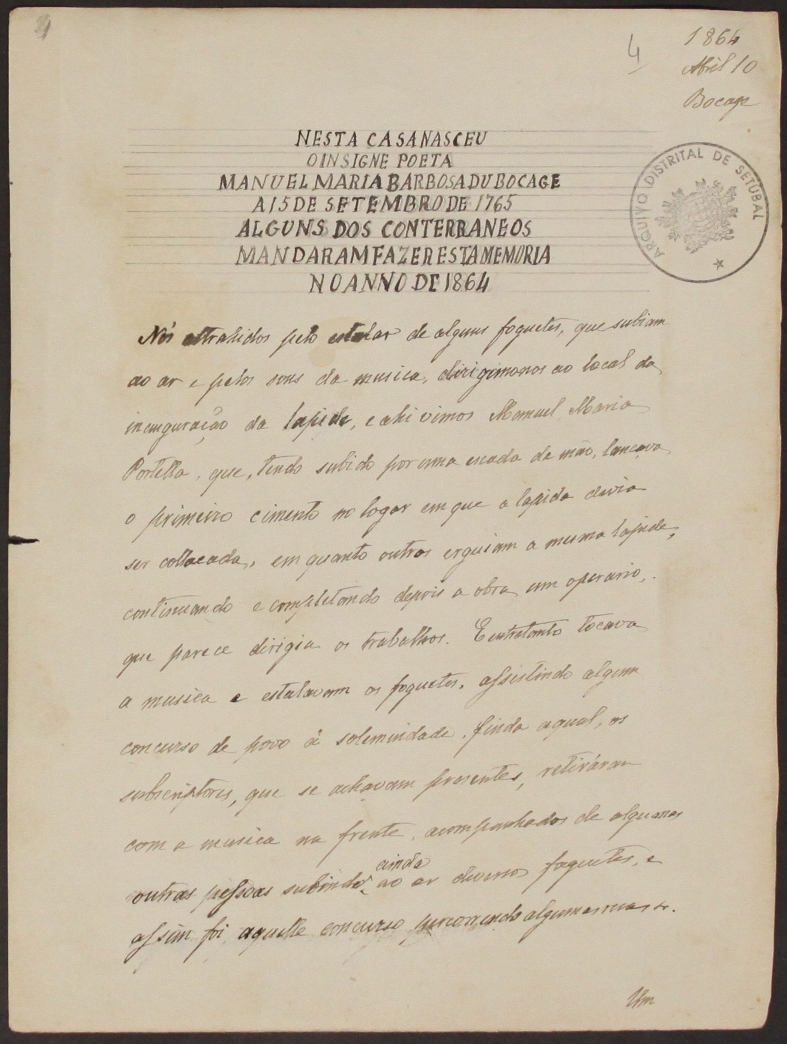 4
1864
Abril 10
Bocage
NESTA CASA NASCEU
O INSIGNE POETA
MANUEL MARIA BARBOSA DU BOCAGE
A 15 DE SETEMBRO DE 1765
ALGUNS DOS CONTERRANEOS
MANDARAM FAZER ESTA MEMORIA
NO ANNO DE 1864
ARQUIVO DISTRITAL DE SETÚBAL
Nós attrahidos pelo estalar de alguns foguetes, que subiam
ao ar e pelos sons da musica, dirigimonos ao local da
inauguração da lapide, e ahi vimos Manuel Maria
Portella, que, tendo subido por uma escada de mão, lançava
o primeiro cimento no logar em que a lapida devia
ser collocada, em quanto outros erguiam a mesma lapide,
continuando e completando depois a obra um operario,
que parece dirigia os trabalhos. Entretanto tocava
a musica e estalavam os foguetes, assistindo algum
concurso de povo á solemnidade, finda a qual, os
subscriptores, que se achavam presentes, retiráram
com a musica na frente, acompanhados de algumas
outras pessoas subindo ainda ao ar diversos foguetes, e
assim foi aquelle concurso percorrendo algumas ruas